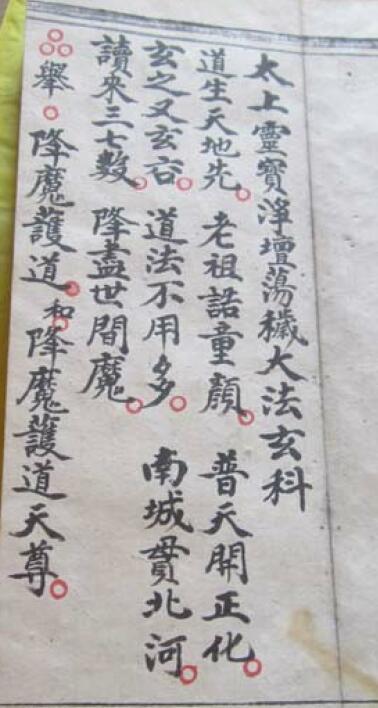 太上靈寶淨壇蕩穢大法玄科
道生天地先。老祖誥童顏。普天開正化。
玄之又玄谷。道法不用多。南城貫北河。
讀來三七數。降盡世間魔。
舉。降魔護道。和降魔護道天尊。